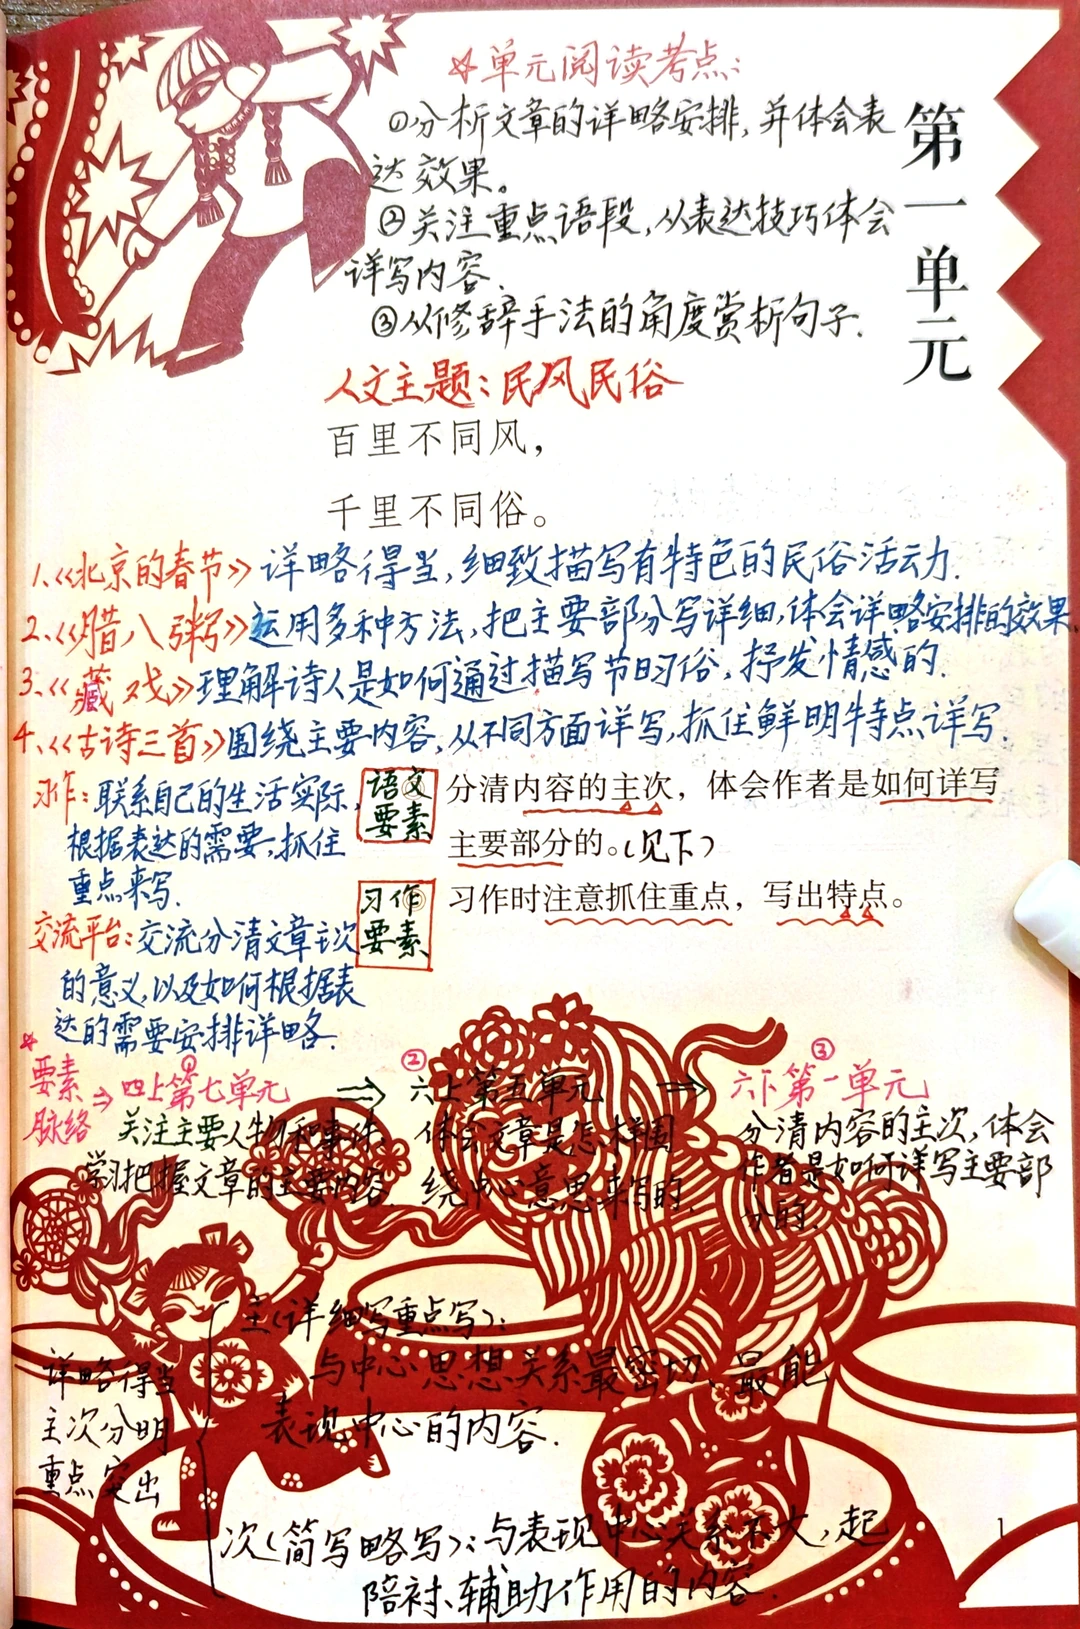 ☆单元阅读考点：
①分析文章的详略安排，并体会表
达效果。
②关注重点语段，从表达技巧体会
详写内容.
③从修辞手法的角度赏析句子.
第一单元
人文主题：民风民俗
百里不同风，
千里不同俗。
1.《北京的春节》详略得当，细致描写有特色的民俗活动.
2、《腊八粥》运用多种方法，把主要部分写详细，体会详略安排的效果.
3、《藏戏》理解诗人是如何通过描写节日习俗，抒发情感的.
4、《古诗三首》围绕主要内容，从不同方面详写，抓住鲜明特点详写.
习作：联系自己的生活实际，
根据表达的需要，抓住
重点来写.
交流平台：交流分清文章主次
的意义，以及如何根据表
达的需要安排详略.
语文要素
分清内容的主次，体会作者是如何详写
主要部分的。（见下）
习作要素
习作时注意抓住重点，写出特点。
☆要素脉络⇒
①四上第七单元
关注主要人物和事件，
学习把握文章的主要内容.
⇒
②六上第五单元
体会文章是怎样围
绕中心意思来写的.
⇒
③六下第一单元
分清内容的主次，体会
作者是如何详写主要部
分的.
详略得当
主次分明
重点突出
主（详细写重点写）：
与中心思想关系最密切、最能
表现中心的内容.
次（简写略写）：与表现中心关系不大，起
陪衬、辅助作用的内容.
1